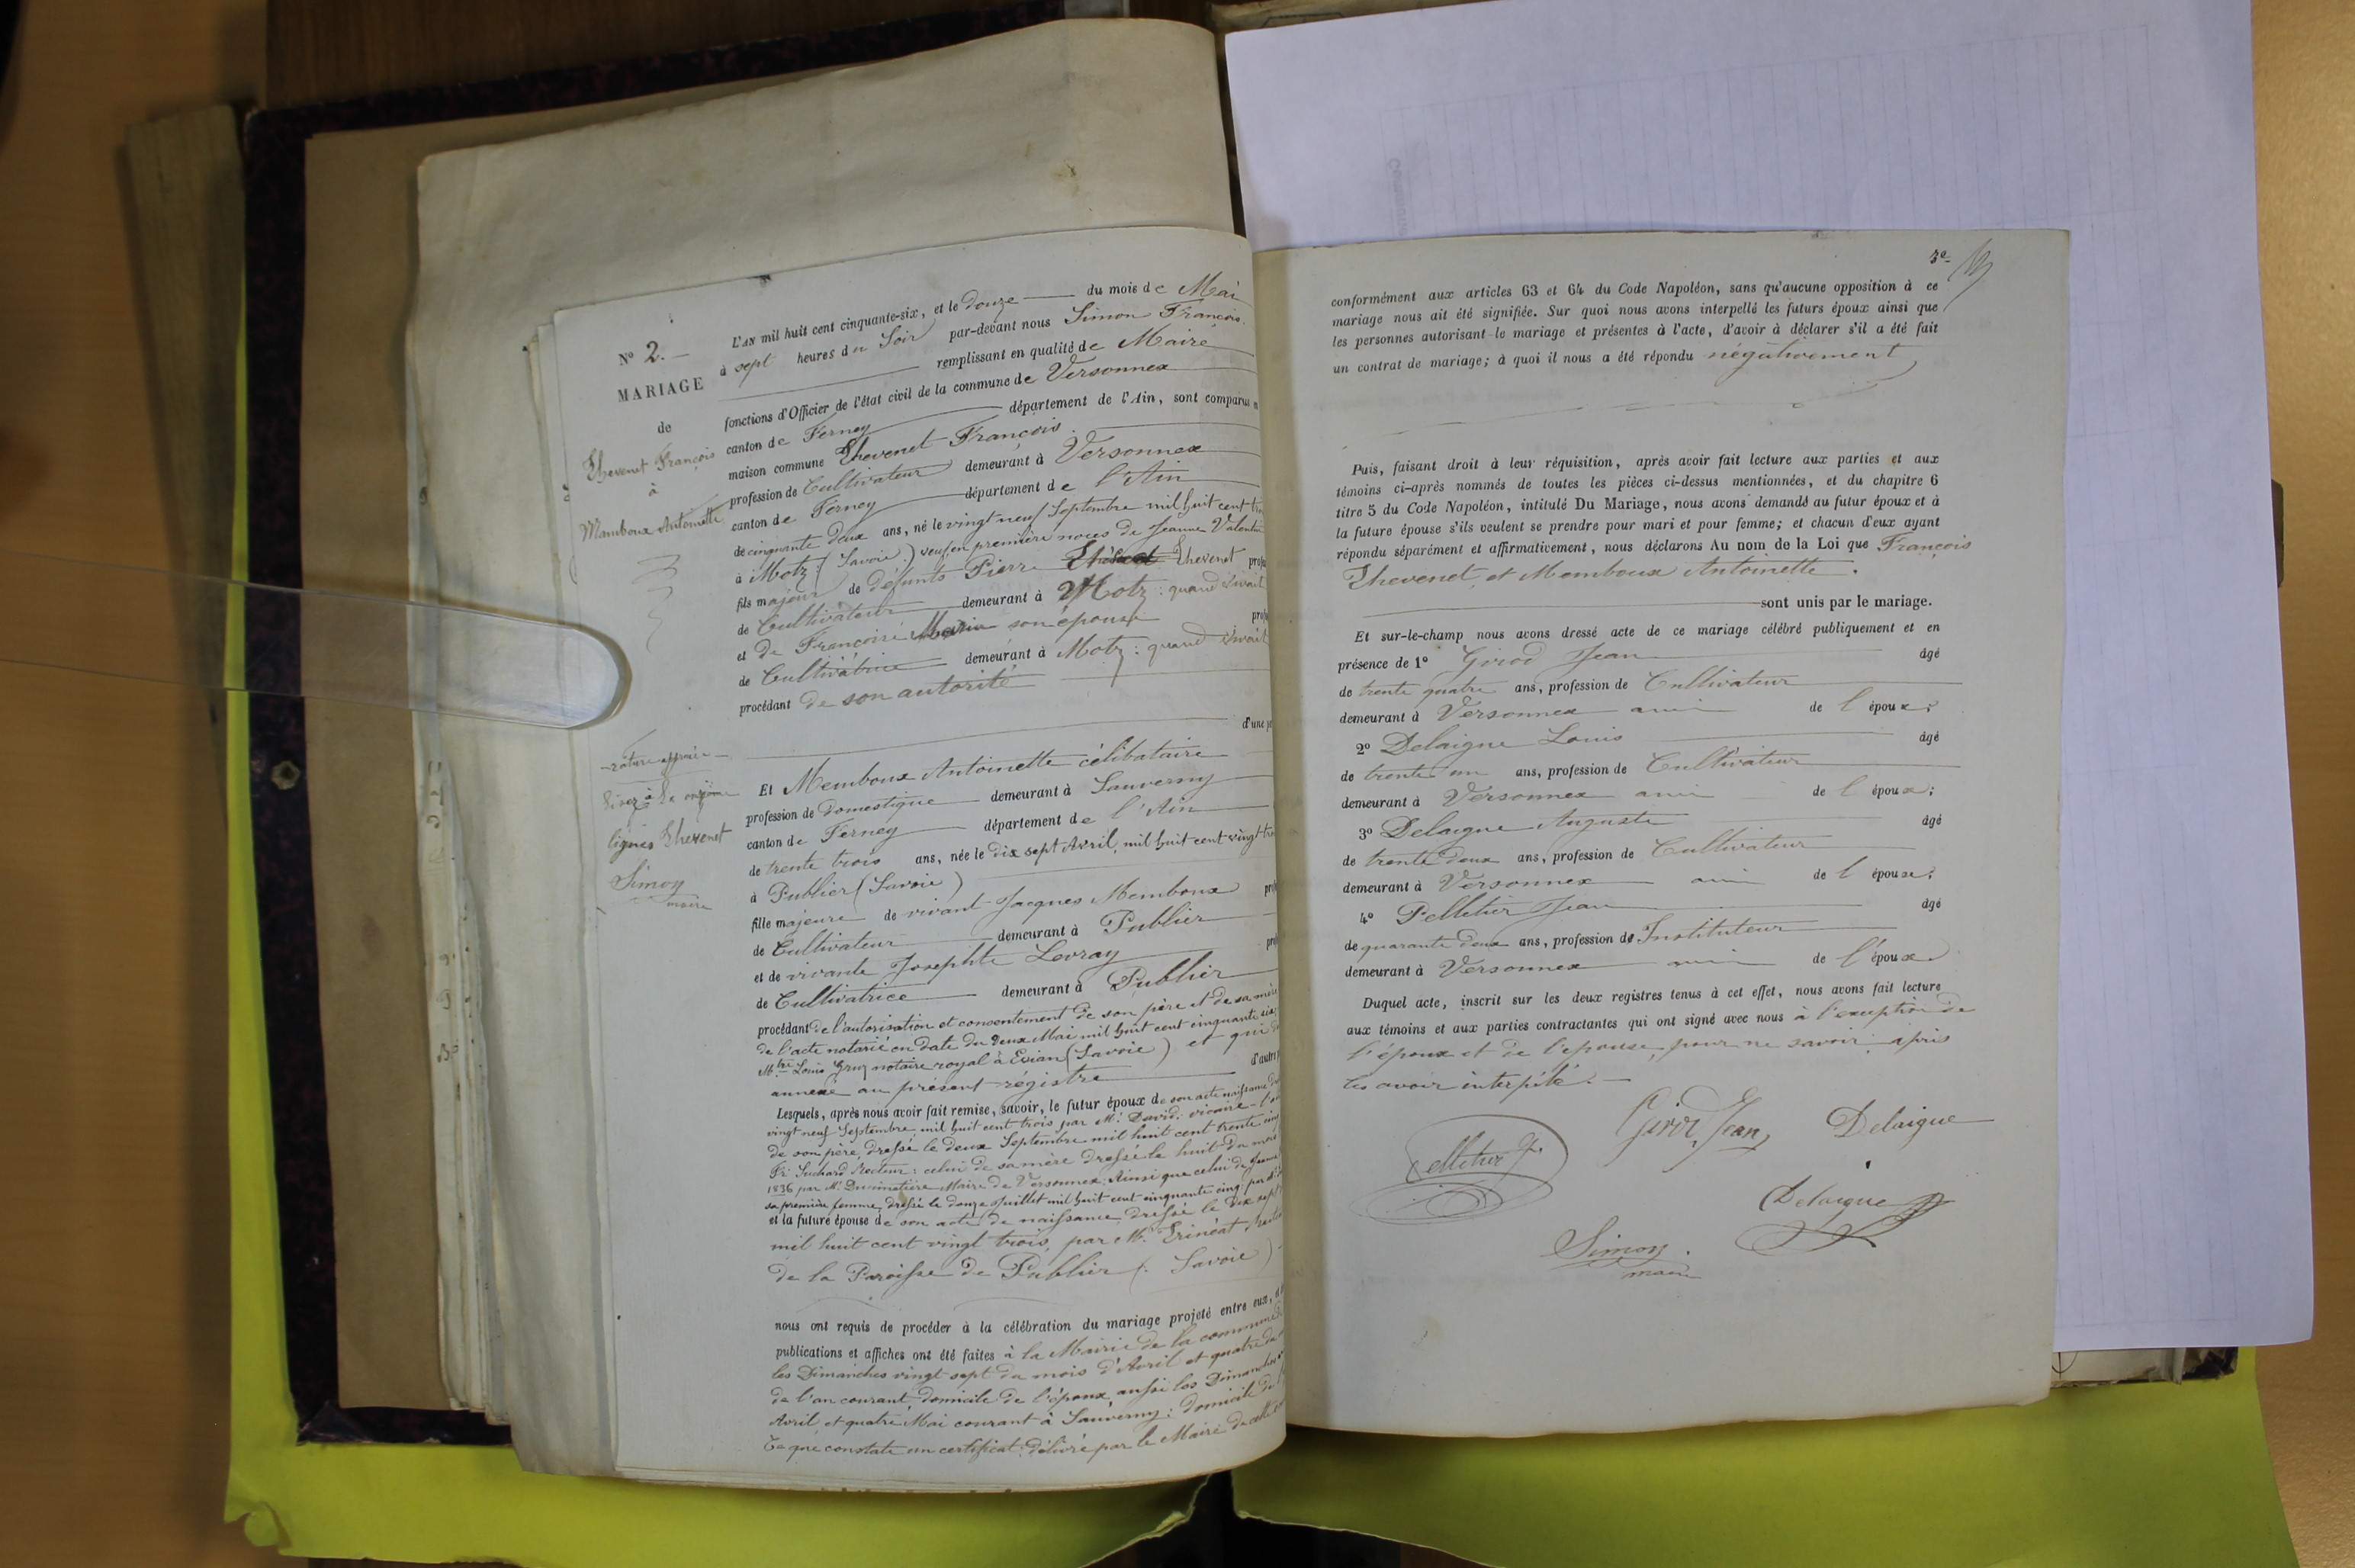 N° 2. —
MARIAGE
de
Thevenet François
à
Mamboux Antoinette
L'AN mil huit cent cinquante-six, et le douze du mois de Mai
à sept heures du Soir par-devant nous Simon François
remplissant en qualité de Maire
fonctions d'Officier de l'état civil de la commune de Versonnex
canton de Ferney département de l'Ain, sont comparus
maison commune Thevenet François
profession de Cultivateur demeurant à Versonnex
canton de Ferney département de l'Ain
de cinquante deux ans, né le vingt neuf Septembre mil huit cent
à Motz (Savoie) veuf en première noces de Jeanne
fils majeur de défunts Pierre Thevenet
de Cultivateur demeurant à Motz : quand vivait
et de Françoise Marin son épouse
de Cultivatrice demeurant à Motz : quand vivait
procédant de son autorité
d'une
rature approuvée
lisez à la onzième
lignes Thevenet
Simon
maire
Et Memboux Antoinette célibataire
profession de Domestique demeurant à Sauverny
canton de Ferney département de l'Ain
de trente trois ans, née le dix sept Avril, mil huit cent vingt
à Publier (Savoie)
fille majeure de vivant Jacques Memboux
de Cultivateur demeurant à Publier
et de vivante Josephte Levray
de Cultivatrice demeurant à Publier
procédant de l'autorisation et consentement de son père et de sa mère
de l'acte notarié en date du deux Mai mil huit cent cinquante six
Louis notaire royal à Evian (Savoie) et qui
annexé au présent régistre d'autre
Lesquels, après nous avoir fait remise, savoir, le futur époux de son acte naissance
vingt neuf Septembre mil huit cent trois par Mr David vicaire
de son père, dressé le deux Septembre mil huit cent trente
Suchard Recteur : celui de sa mère dressé le huit du mois
1836 par Mr Maire de Versonnex. Ainsi que celui de Jeanne
sa première femme, dressé le douze Juillet mil huit cent cinquante cinq par
et la future épouse de son acte de naissance, dressé le dix sept
mil huit cent vingt trois, par Mr
de la Paroisse de Publier (Savoie)
nous ont requis de procéder à la célébration du mariage projeté entre eux,
publications et affiches ont été faites à la Mairie de la commune
les Dimanches vingt sept du mois d'Avril et quatre du
de l'an courant, domicile de l'époux, aussi les Dimanches
Avril, et quatre Mai courant à Sauverny : domicile de
Ce que constate un certificat délivré par le Maire de cette
3e
conformément aux articles 63 et 64 du Code Napoléon, sans qu'aucune opposition à ce
mariage nous ait été signifiée. Sur quoi nous avons interpellé les futurs époux ainsi que
les personnes autorisant le mariage et présentes à l'acte, d'avoir à déclarer s'il a été fait
un contrat de mariage; à quoi il nous a été répondu négativement
Puis, faisant droit à leur réquisition, après avoir fait lecture aux parties et aux
témoins ci-après nommés de toutes les pièces ci-dessus mentionnées, et du chapitre 6
titre 5 du Code Napoléon, intitulé Du Mariage, nous avons demandé au futur époux et à
la future épouse s'ils veulent se prendre pour mari et pour femme; et chacun d'eux ayant
répondu séparément et affirmativement, nous déclarons Au nom de la Loi que François
Thevenet et Memboux Antoinette.
sont unis par le mariage.
Et sur-le-champ nous avons dressé acte de ce mariage célébré publiquement et en
présence de 1° Girod Jean âgé
de trente quatre ans, profession de Cultivateur
demeurant à Versonnex ami de l'époux;
2° Delaigue Louis âgé
de trente un ans, profession de Cultivateur
demeurant à Versonnex ami de l'époux;
3° Delaigue Auguste âgé
de trente deux ans, profession de Cultivateur
demeurant à Versonnex ami de l'époux;
4° Pelletier Jean âgé
de quarante deux ans, profession de Instituteur
demeurant à Versonnex ami de l'époux
Duquel acte, inscrit sur les deux registres tenus à cet effet, nous avons fait lecture
aux témoins et aux parties contractantes qui ont signé avec nous à l'exception de
l'époux et de l'épouse, pour ne savoir, après
les avoir interpélé.
Girod Jean Delaigue
Pelletier
Delaigue
Simon
maire